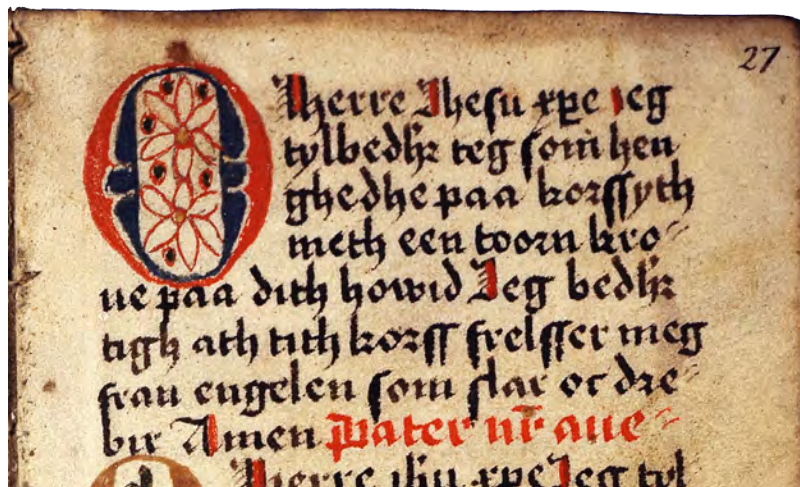 27
O Aherre Ihesu xpe ieg
tylbedhr teg som hen
ghedhe paa korssyth
meth een toorn kro⸗
ne paa dith howid Ieg bedhr
tigh ath tith korss frelsser meg
fran engelen som slar oc dre⸗
bir Amen Pater nr aue⸗
Aherre ihu xpe Ieg tyl